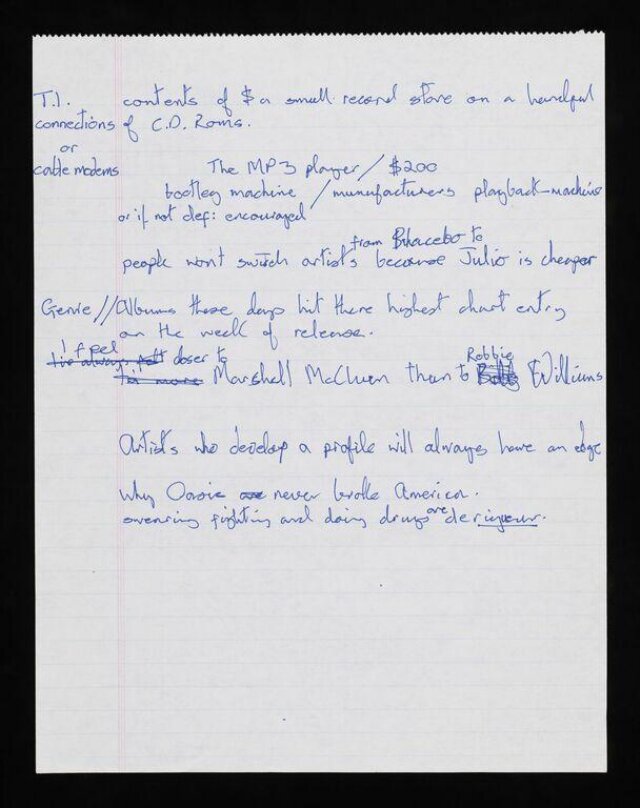 T.I. contents of $ a small record store on a handful
connections of C.D. Roms.
or
cable modems The MP3 player / $200
bootleg machine / manufacturers playback-machine
or if not def: encouraged
from Bhacebo to
people won't switch artists because Julio is cheaper
Genre // Albums these days hit there highest chart entry
on the week of release.
I feel
closer to Robbie
Marshall McCluen than to Williams
Artists who develop a profile will always have an edge
Why Oasis never broke America.
swearing fighting and doing drugs are derigueur.